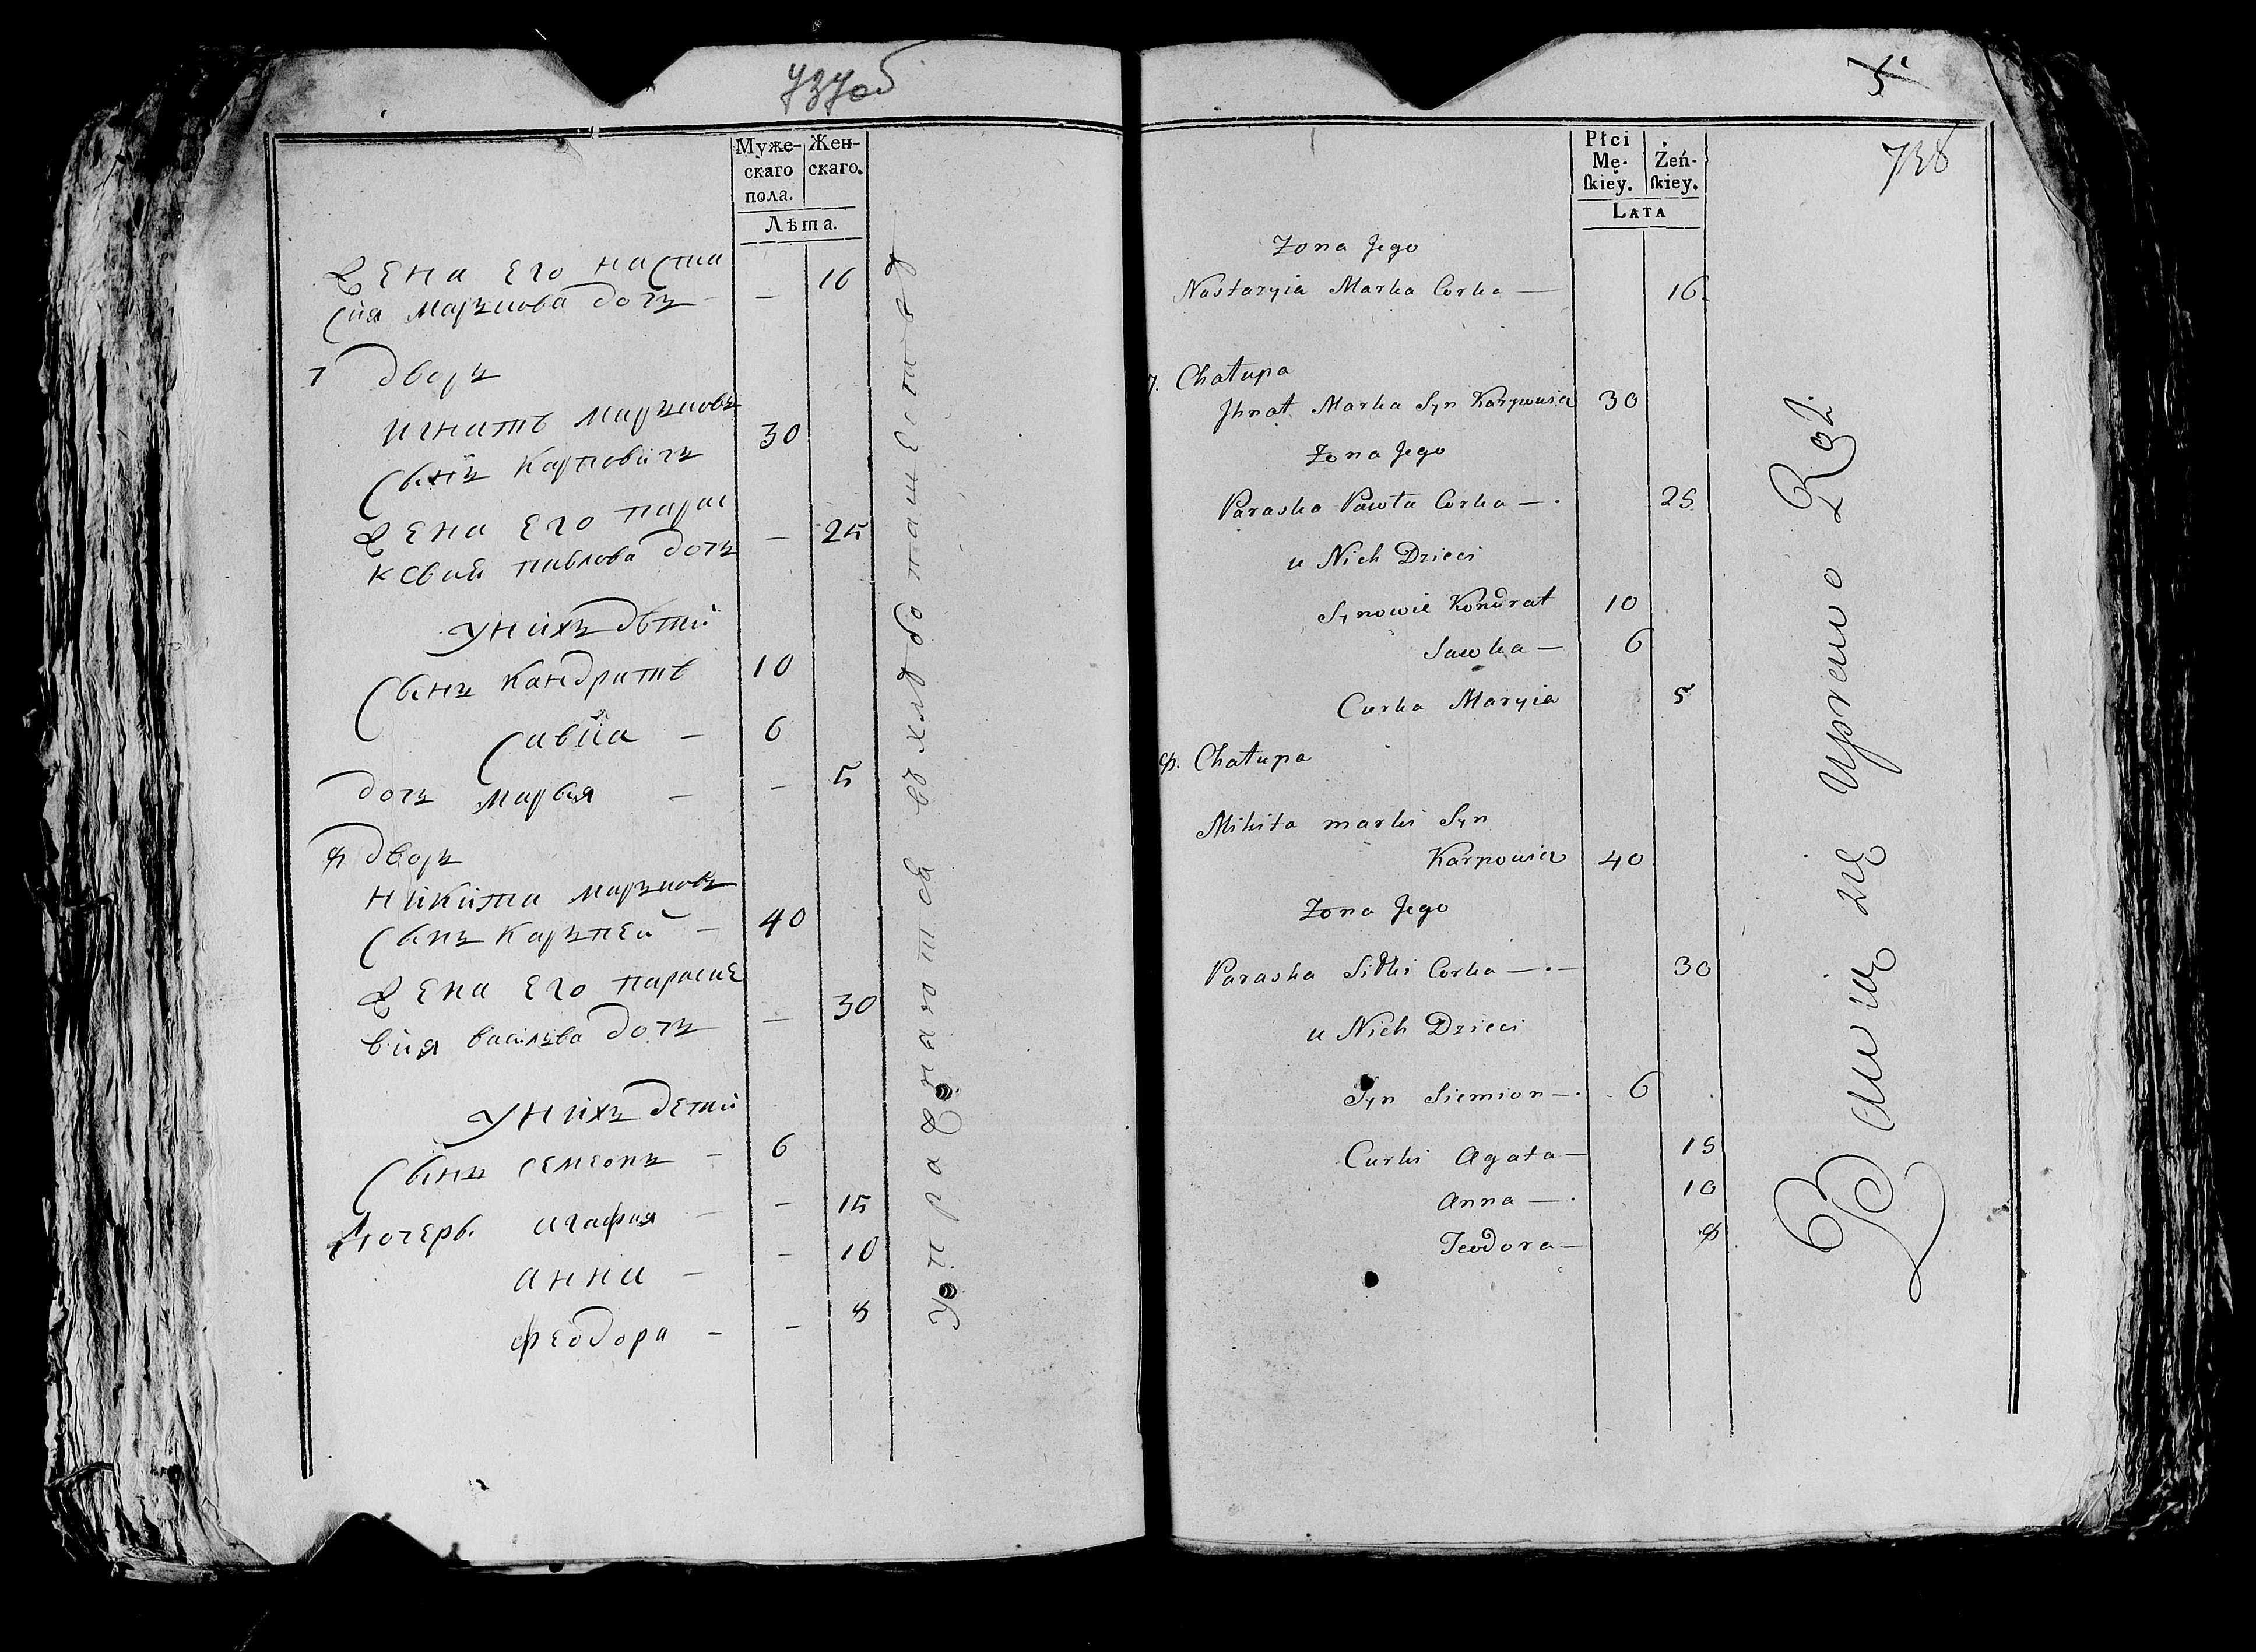 737об
Муже-
скаго
пола.
Жен-
скаго.
Лѣта.
Жена его наста
сия маръкова дочъ — — 16
7 дворъ
игнатъ маръковъ
сынъ карповичъ 30
Жена его парас
кевия павлова дочъ — 25
у нихъ дѣтей
сынъ кандратъ 10
савка — 6
дочъ марья — — 5
8 дворъ
никита маръковъ
сынъ каръпей — 40
Жена его параске
вия васильва дочъ — 30
у нихъ детей
сынъ семеонъ — 6
дочерь агафия — — 15
анна — — 10
феодора — — 8
упражняютса въ хлѣбопашествѣ
5
738
Płci
Mę-
skiey.
Żeń-
skiey.
LATA
Zona Jego
Nastazyia Marka Corka — 16
7. Chałupa
Jhnat Marka Syn Karpowicz 30
Zona Jego
Paraska Pawła Corka — 25
u Nich Dzieci
Synowie Kondrat 10
Sawka — 6
Curka Maryia 5
8. Chałupa
Mikita marki Syn
Karpowicz 40
Zona Jego
Paraska Corka — 30
u Nich Dzieci
Syn Siemion — 6
Curki Agata — 15
Anna — 10
Teodora — 8
Bawią się Uprawo Roli